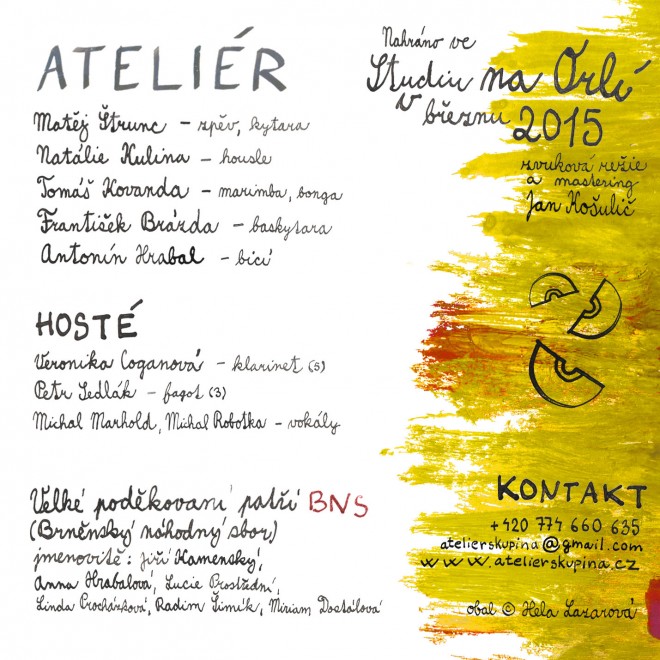 ATELIÉR
Matěj Štrunc – zpěv, kytara
Natálie Kulina – housle
Tomáš Kovanda – marimba, bonga
František Brázda – baskytara
Antonín Hrabal – bicí
HOSTÉ
Veronika Coganová – klarinet (5)
Petr Sedlák – fagot (3)
Michal Marhold, Michal Robotka – vokály
Velké poděkovaní patří BNS
(Brněnský náhodný sbor)
jmenovitě: Jiří Kamenský,
Anna Hrabalová, Lucie Prostřední,
Linda Procházková, Radim Šimík, Miriam Dostálová
Nahráno ve
Studiu na Orlí
v březnu 2015
zvuková režie
a mastering
Jan Košulič
KONTAKT
+420 774 660 635
atelierskupina@gmail.com
www.atelierskupina.cz
obal © Hela Lazarová